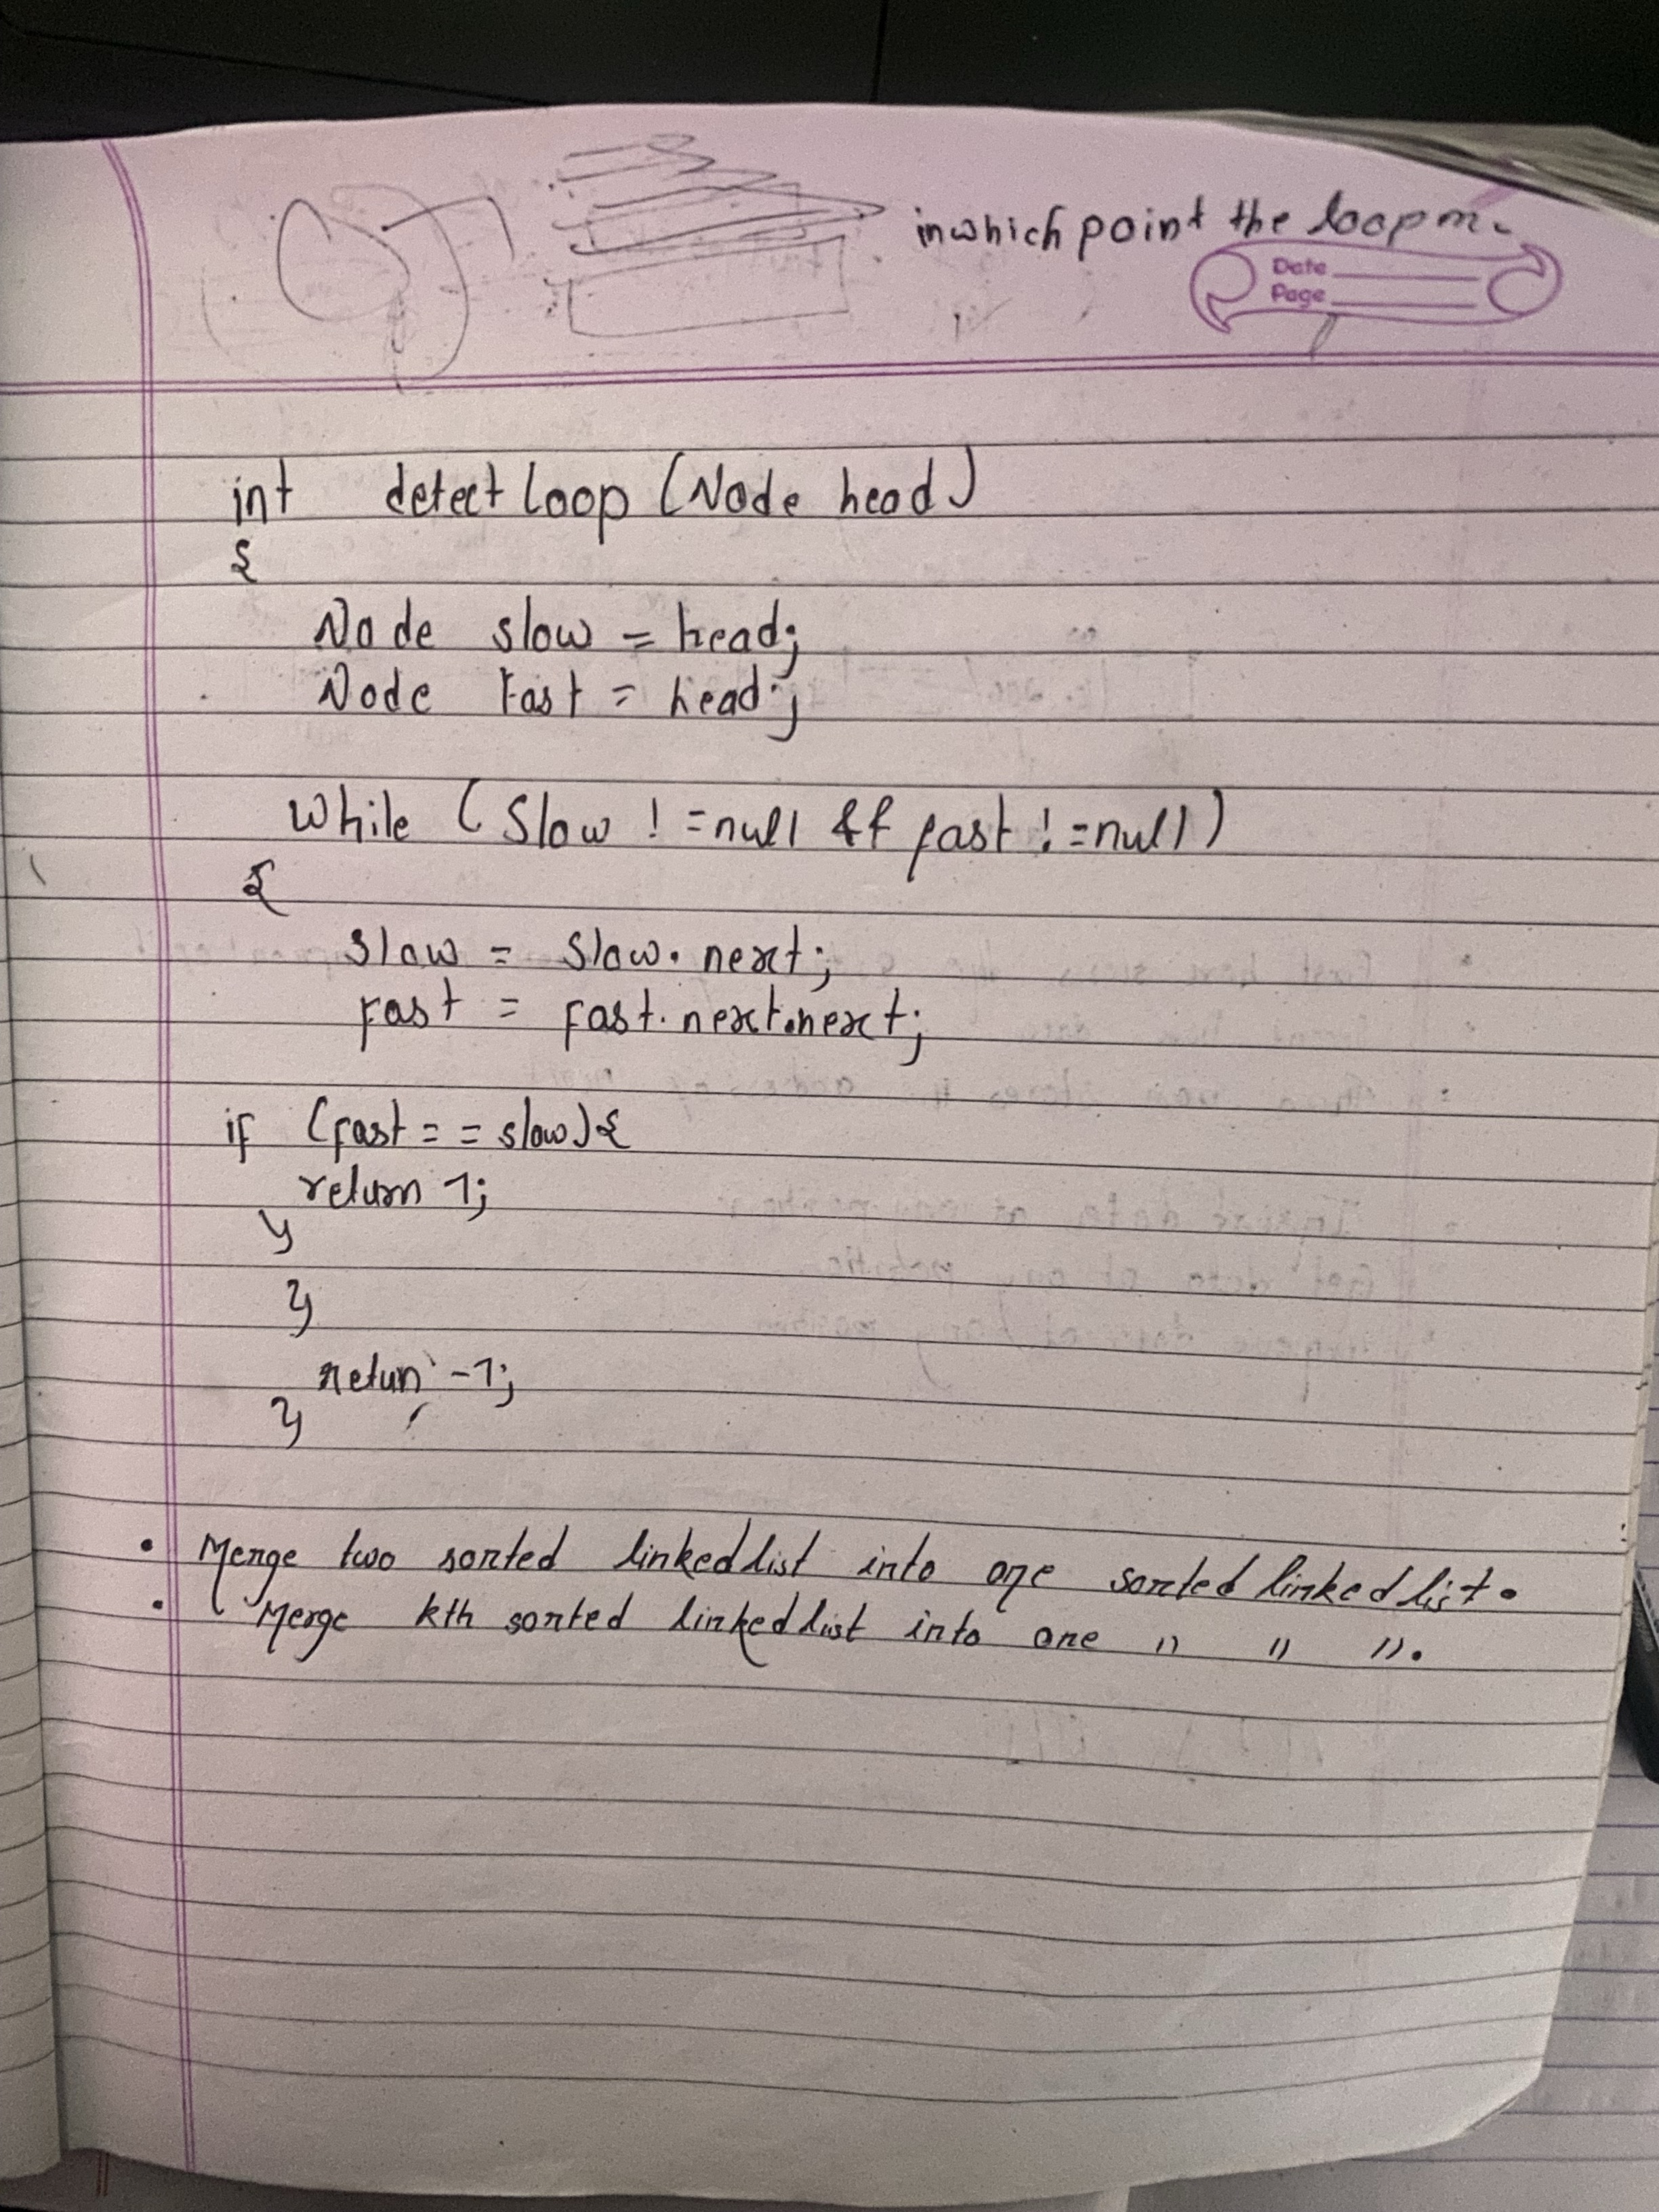 in which point the loop m.
Date
Page
int detectLoop (Node head)
{
Node slow = head;
Node Fast = head;
while (Slow != null && fast != null)
{
slow = slow.next;
fast = fast.next.next;
if (fast == slow){
return 1;
}
}
return -1;
}
• Merge two sorted linkedlist into one sorted linkedlist.
• Merge kth sorted linkedlist into one " " ".